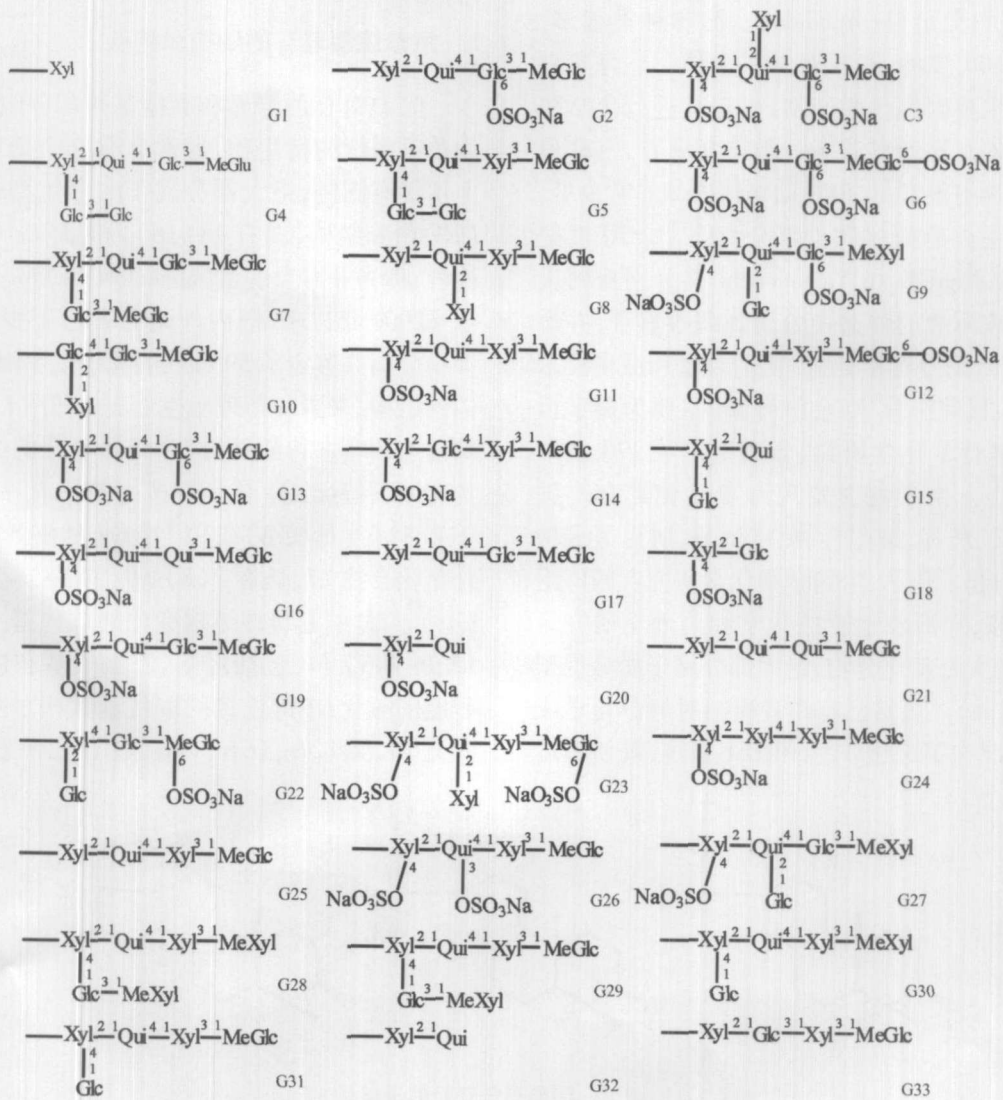 Xyl
G1
Xyl 2 1 Qui 4 1 Glc 3 1 MeGlc
6
OSO3Na
G2
Xyl
1
2
Xyl 2 1 Qui 4 1 Glc 3 1 MeGlc
4 6
OSO3Na OSO3Na
C3
Xyl 2 1 Qui 4 1 Glc 3 1 MeGlu
4
1
Glc 3 1 Glc
G4
Xyl 2 1 Qui 4 1 Xyl 3 1 MeGlc
4
1
Glc 3 1 Glc
G5
Xyl 2 1 Qui 4 1 Glc 3 1 MeGlc 6 OSO3Na
4 6
OSO3Na OSO3Na
G6
Xyl 2 1 Qui 4 1 Glc 3 1 MeGlc
4
1
Glc 3 1 MeGlc
G7
Xyl 2 1 Qui 4 1 Xyl 3 1 MeGlc
2
1
Xyl
G8
Xyl 2 1 Qui 4 1 Glc 3 1 MeXyl
4 2 6
1
NaO3SO Glc OSO3Na
G9
Glc 4 1 Glc 3 1 MeGlc
2
1
Xyl
G10
Xyl 2 1 Qui 4 1 Xyl 3 1 MeGlc
4
OSO3Na
G11
Xyl 2 1 Qui 4 1 Xyl 3 1 MeGlc 6 OSO3Na
4
OSO3Na
G12
Xyl 2 1 Qui 4 1 Glc 3 1 MeGlc
4 6
OSO3Na OSO3Na
G13
Xyl 2 1 Glc 4 1 Xyl 3 1 MeGlc
4
OSO3Na
G14
Xyl 2 1 Qui
4
1
Glc
G15
Xyl 2 1 Qui 4 1 Qui 3 1 MeGlc
4
OSO3Na
G16
Xyl 2 1 Qui 4 1 Glc 3 1 MeGlc
G17
Xyl 2 1 Glc
4
OSO3Na
G18
Xyl 2 1 Qui 4 1 Glc 3 1 MeGlc
4
OSO3Na
G19
Xyl 2 1 Qui
4
OSO3Na
G20
Xyl 2 1 Qui 4 1 Qui 3 1 MeGlc
G21
Xyl 4 1 Glc 3 1 MeGlc
2 6
1
Glc OSO3Na
G22
Xyl 2 1 Qui 4 1 Xyl 3 1 MeGlc
4 2 6
1
NaO3SO Xyl NaO3SO
G23
Xyl 2 1 Xyl 4 1 Xyl 3 1 MeGlc
4
OSO3Na
G24
Xyl 2 1 Qui 4 1 Xyl 3 1 MeGlc
G25
Xyl 2 1 Qui 4 1 Xyl 3 1 MeGlc
4 3
NaO3SO OSO3Na
G26
Xyl 2 1 Qui 4 1 Glc 3 1 MeXyl
4 2
1
NaO3SO Glc
G27
Xyl 2 1 Qui 4 1 Xyl 3 1 MeXyl
4
1
Glc 3 1 MeXyl
G28
Xyl 2 1 Qui 4 1 Xyl 3 1 MeGlc
4
1
Glc 3 1 MeXyl
G29
Xyl 2 1 Qui 4 1 Xyl 3 1 MeXyl
4
1
Glc
G30
Xyl 2 1 Qui 4 1 Xyl 3 1 MeGlc
4
1
Glc
G31
Xyl 2 1 Qui
G32
Xyl 2 1 Glc 3 1 Xyl 3 1 MeGlc
G33